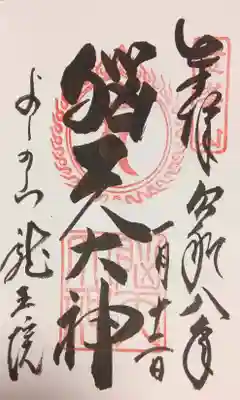 奉拝 令和八年
一月十二日
脳天大神
よしの山 龍王院